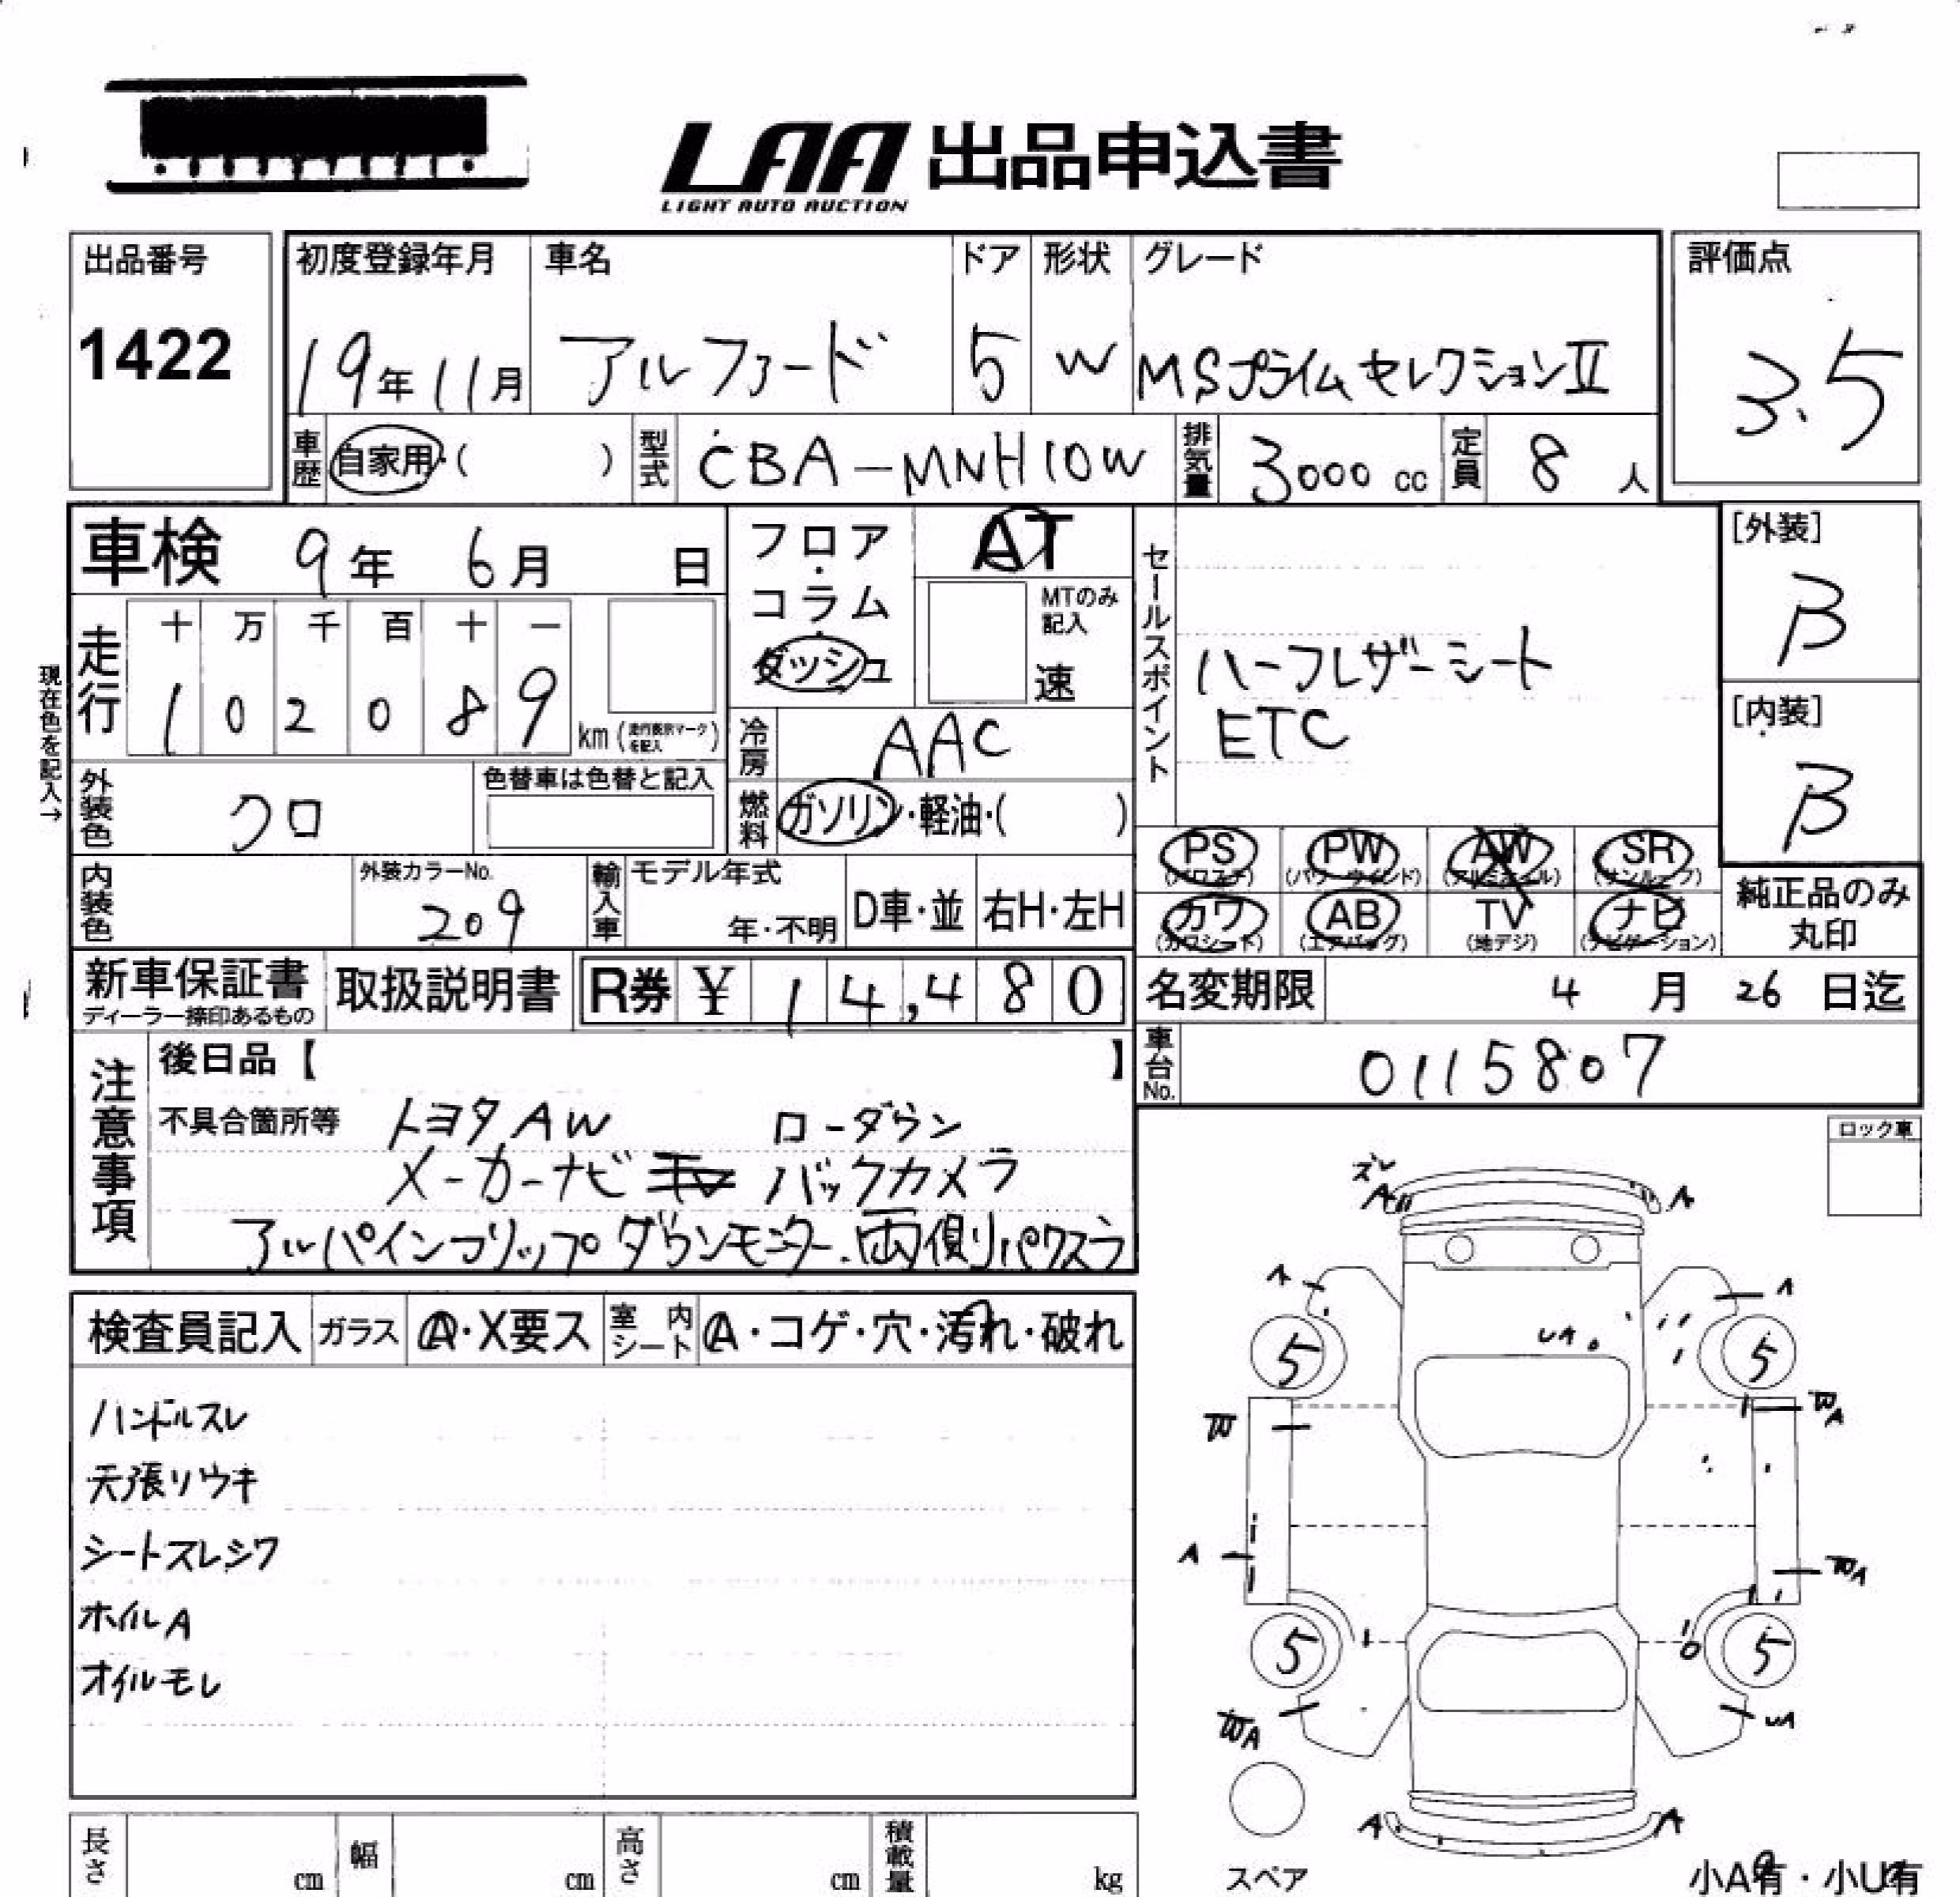 LAA 出品申込書
LIGHT AUTO AUCTION
出品番号 初度登録年月 車名 ドア 形状 グレード 評価点
1422 19年11月 アルファード 5 W MSプライムセレクションⅡ 3.5
車歴 自家用・( ) 型式 CBA-MNH10W 排気量 3000cc 定員 8人
車検 9年 6月 日 フロア・コラム・ダッシュ AT セールスポイント [外装]
B
MTのみ記入
速
現在色を記入→
走行 十 万 千 百 十 一
1 0 2 0 8 9 km (走行表示マークを記入)
ハーフレザーシート
ETC
[内装]
B
冷房 AAC
外装色 クロ 色替車は色替と記入 燃料 ガソリン・軽油・( )
PS (パワステ) PW (パワーウインド) AW (アルミホイル) SR (サンルーフ)
カワ (カワシート) AB (エアバッグ) TV (地デジ) ナビ (ナビゲーション) 純正品のみ丸印
内装色 外装カラーNo. 209 輸入車 モデル年式 年・不明 D車・並 右H・左H
新車保証書 ディーラー捺印あるもの 取扱説明書 R券 ¥ 14,480 名変期限 4月 26日迄
車台No. 0115807
注意事項 後日品【 】
不具合箇所等 トヨタAW ローダウン
メーカーナビ バックカメラ
アルパインフリップダウンモニター.両側パワスラ
ロック車
検査員記入 ガラス A・X要ス 室内シート A・コゲ・穴・汚れ・破れ
ハンドルスレ
天張リウキ
シートスレシワ
ホイルA
オイルモレ
ズレ
A A
A A
UA
5 5
W WA
A WA
5 5
WA UA
A A
スペア
小A有・小U有
長さ cm 幅 cm 高さ cm 積載量 kg